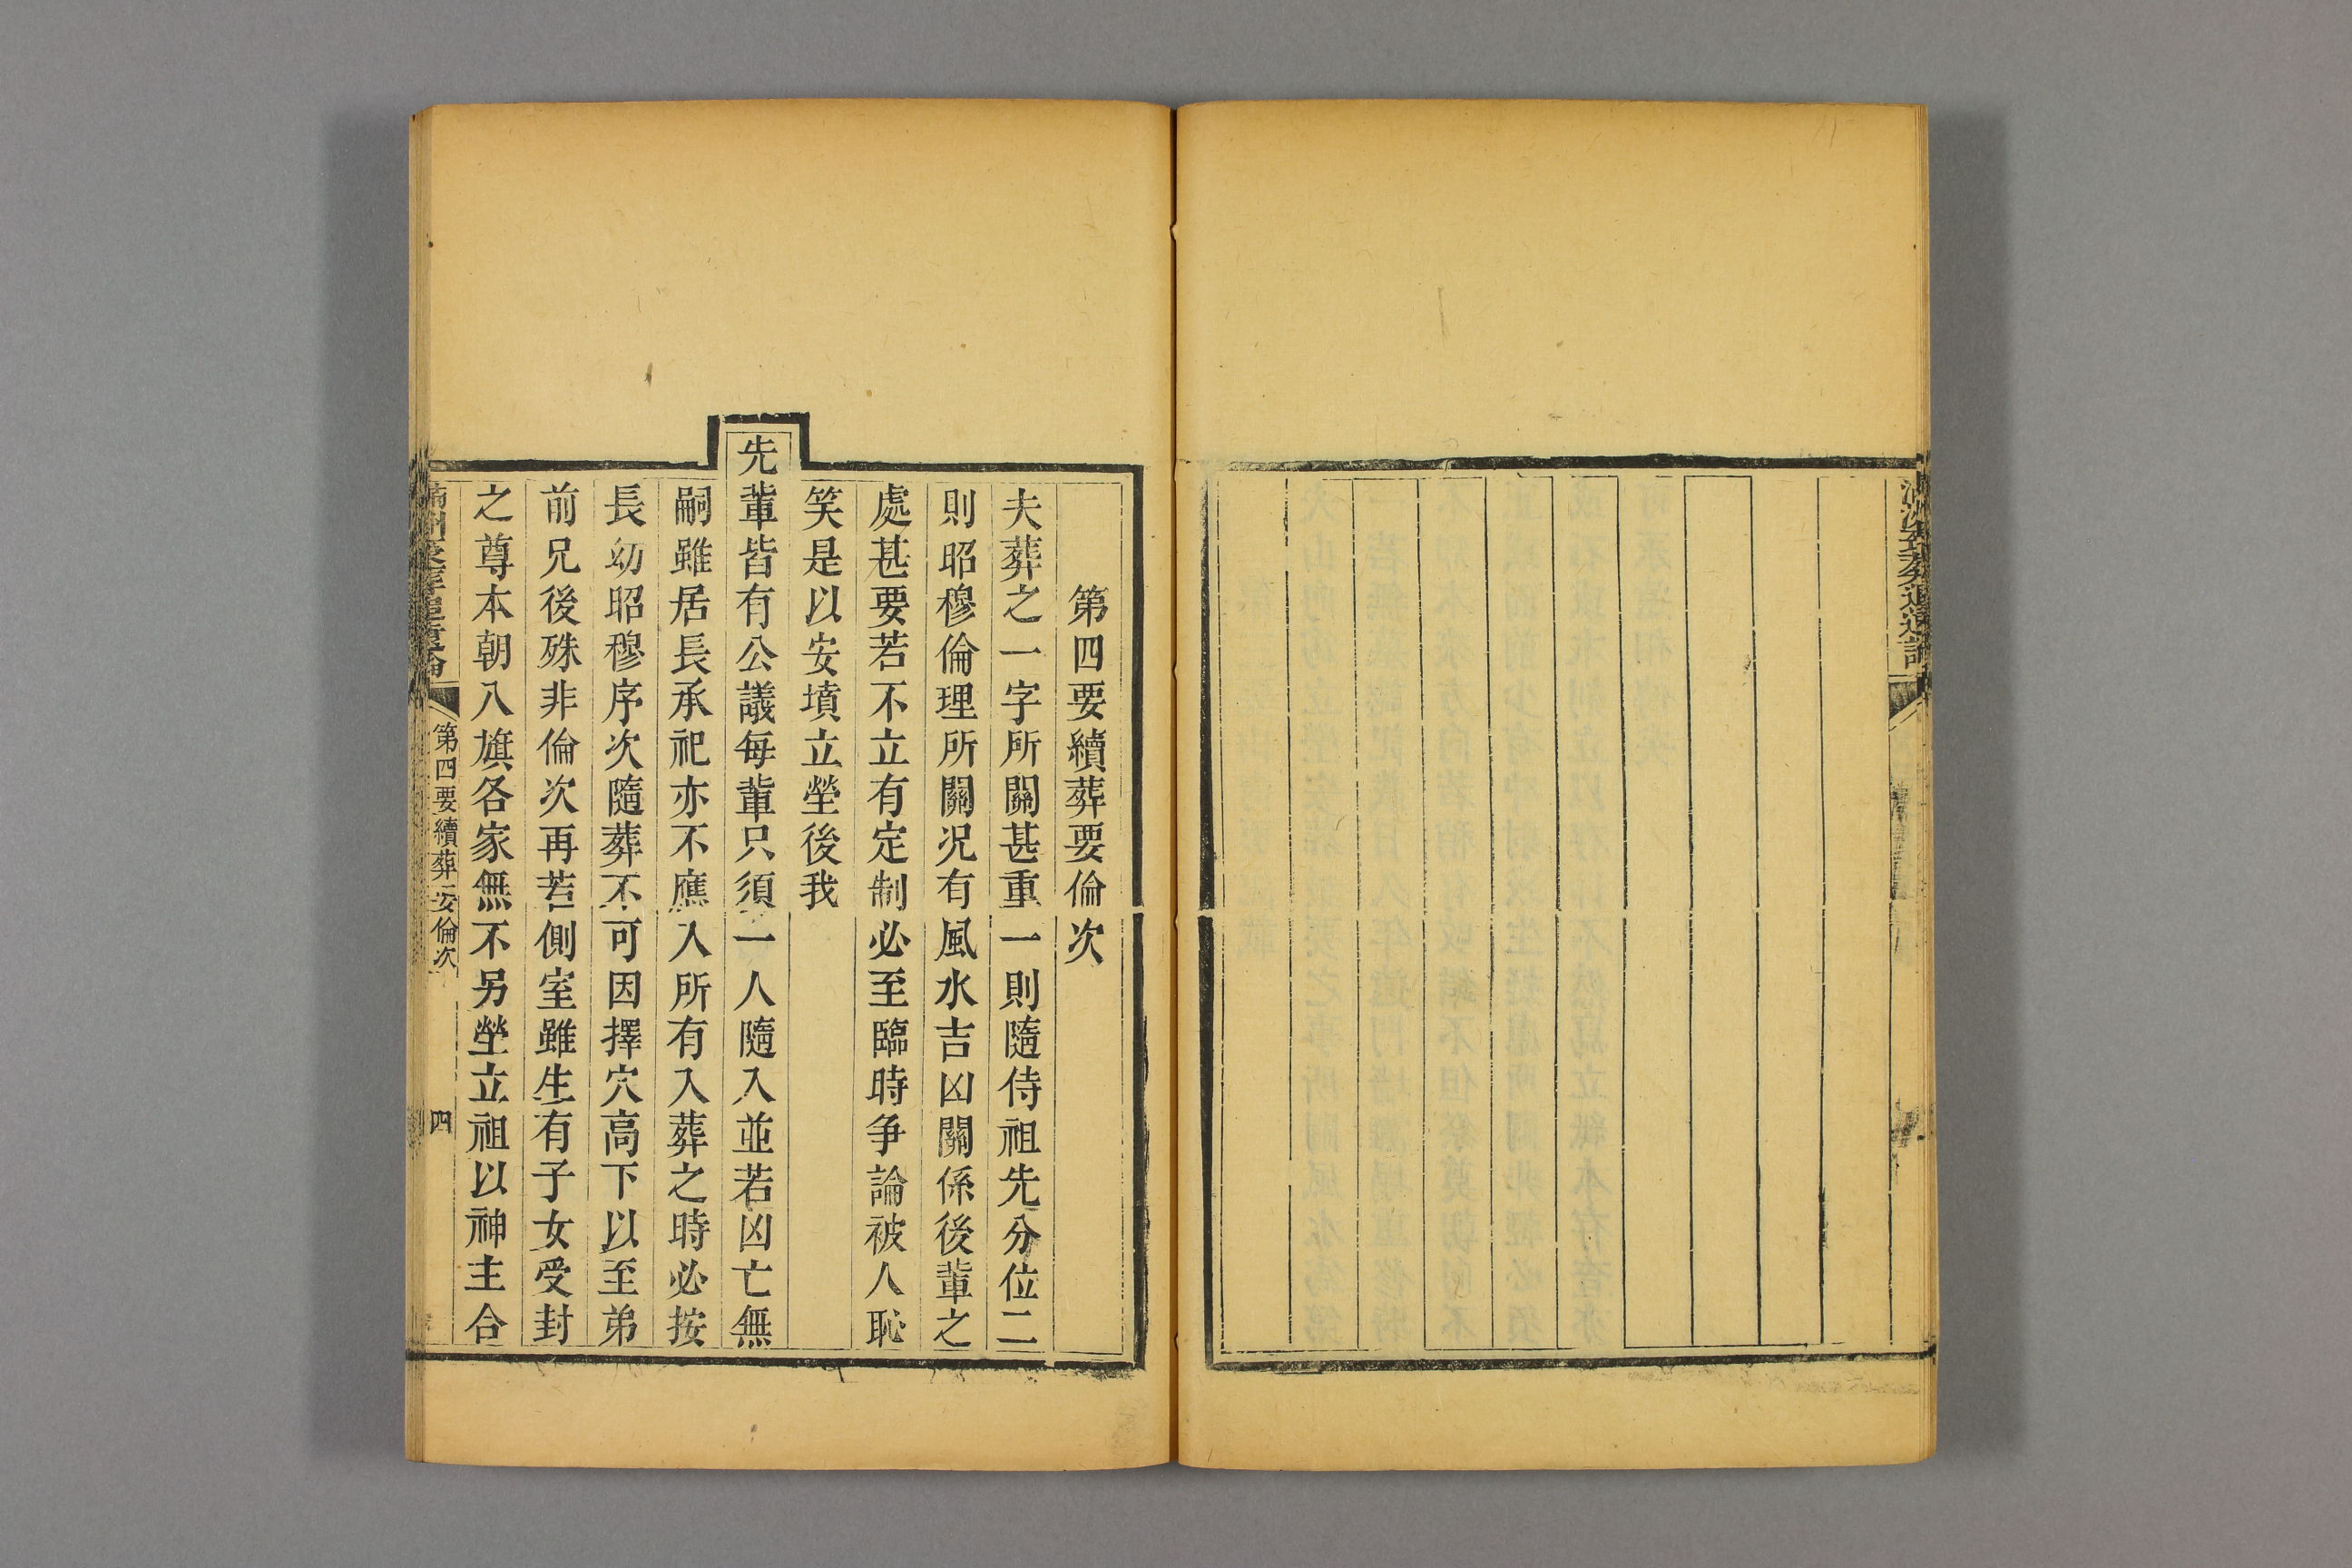 第四要續葬要倫次
夫葬之一字所關甚重一則隨侍祖先分位二
則昭穆倫理所關況有風水吉凶關係後輩之
處甚要若不立有定制必至臨時争論被人恥
笑是以安墳立塋後我
先輩皆有公議每輩只須一人隨入並若凶亡無
嗣雖居長承祀亦不應入所有入葬之時必按
長幼昭穆序次隨葬不可因擇穴高下以至弟
前兄後殊非倫次再若側室雖生有子女受封
之尊本朝八旗各家無不另塋立祖以神主合
第四要續葬安倫次
四